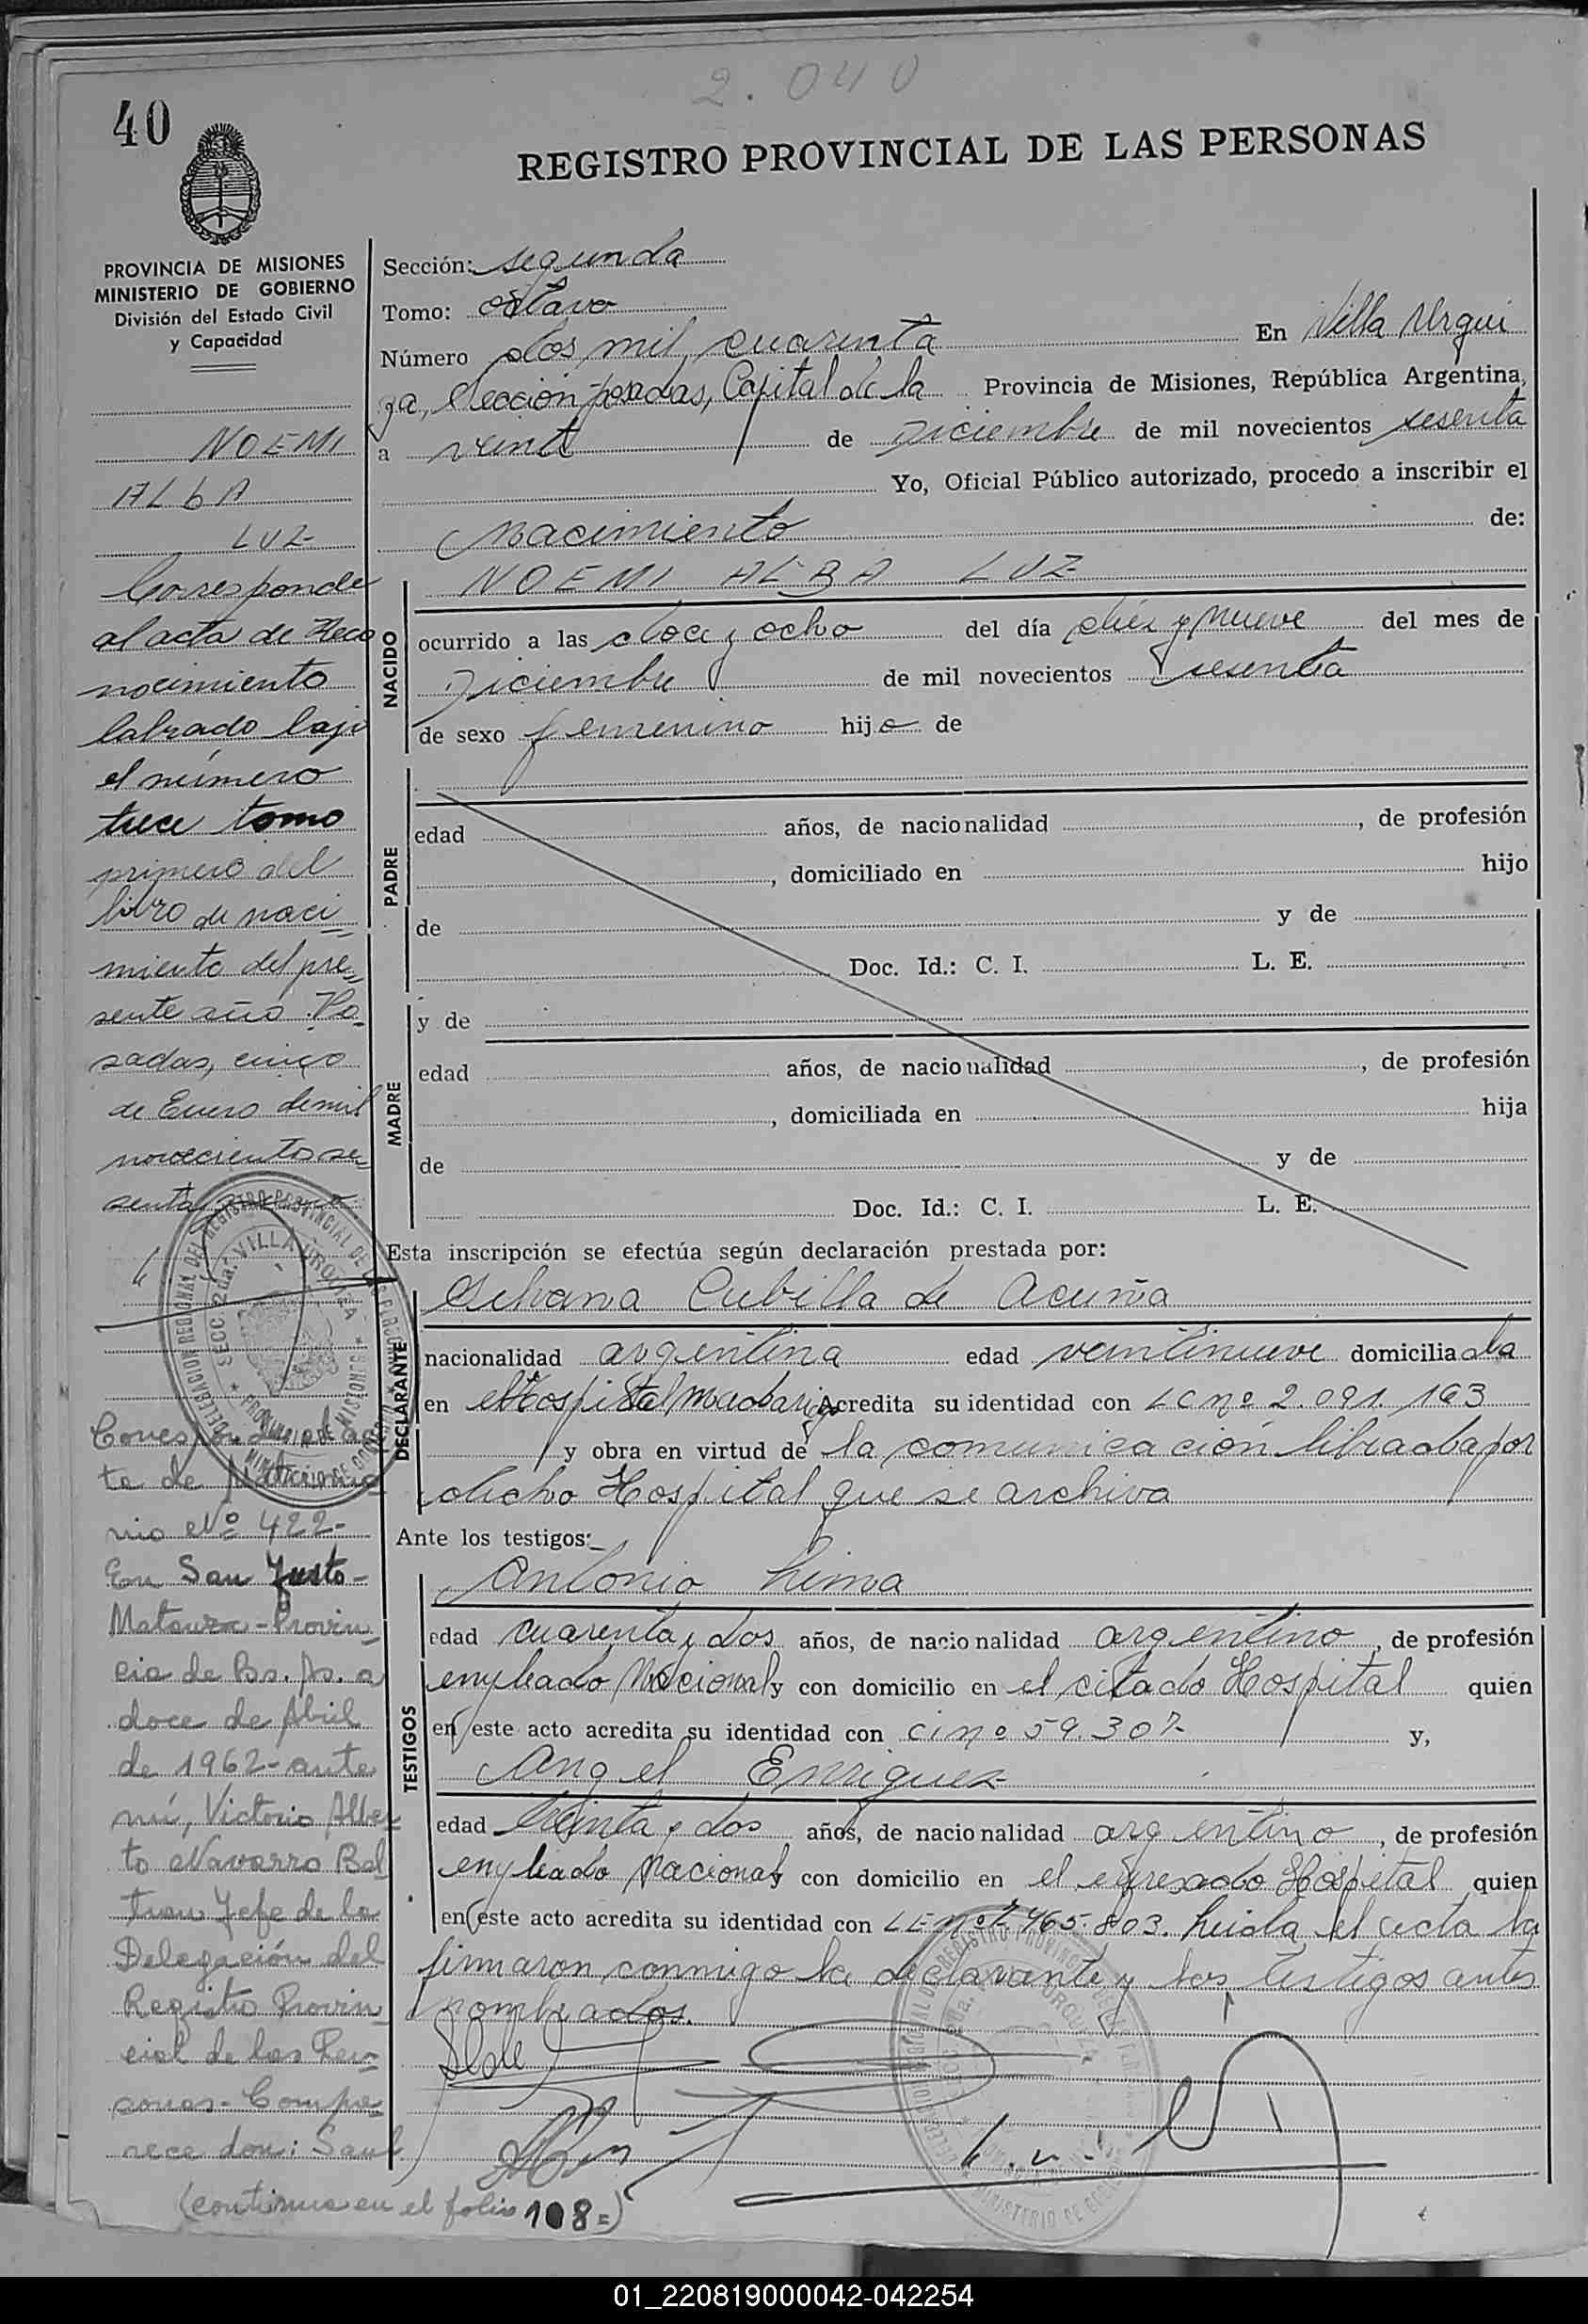 2.040
40
REGISTRO PROVINCIAL DE LAS PERSONAS
PROVINCIA DE MISIONES
MINISTERIO DE GOBIERNO
División del Estado Civil
y Capacidad
NOEMI
ALBA
LUZ
Corresponde
al acta de Reco
nocimiento
labrado bajo
el número
trece tomo
primero del
libro de naci
miento del pre
sente año. Po
sadas, cinco
de Enero de mil
novecientos se
senta
te de Matrimo
nio Nº 422-
En San Justo-
Matanza-Provin
cia de Bs. As. a
doce de Abril
de 1962-ante
mí, Victorio Alber
to Navarro Bel
tran Jefe de la
Delegación del
Registro Provin
cial de las Per
sonas- Compa
rece don: Saul
(continua en el folio 108=)
Sección: segunda
Tomo: octavo
Número dos mil cuarenta En Villa Urqui
za, Sección posadas, Capital de la Provincia de Misiones, República Argentina,
a veinte de Diciembre de mil novecientos sesenta
Yo, Oficial Público autorizado, procedo a inscribir el
Nacimiento de:
NOEMI ALBA LUZ
NACIDO
ocurrido a las doce y ocho del día diez y nueve del mes de
Diciembre de mil novecientos sesenta
de sexo femenino hija de
PADRE
edad años, de nacionalidad , de profesión
, domiciliado en hijo
de y de
Doc. Id.: C. I. L. E.
MADRE
y de
edad años, de nacionalidad , de profesión
, domiciliada en hija
de y de
Doc. Id.: C. I. L. E.
Esta inscripción se efectúa según declaración prestada por:
DECLARANTE
Silvana Cubilla de Acuña
nacionalidad argentina edad veintinueve domiciliada
en el Hospital Madariaga acredita su identidad con LC nº 2.091.163
y obra en virtud de la comunicación librada por
dicho Hospital que se archiva
Ante los testigos:
TESTIGOS
Antonio Lima
edad cuarenta y dos años, de nacionalidad argentino, de profesión
empleado Nacional y con domicilio en el citado Hospital quien
en este acto acredita su identidad con ci nº 59.307- y,
Angel Enriquez
edad treinta y dos años, de nacionalidad argentino, de profesión
empleado Nacional con domicilio en el expresado Hospital quien
en este acto acredita su identidad con LE nº 7.465.803. Leida el acta la
firmaron conmigo la declarante y los testigos antes
nombrados.
DELEGACION REGIONAL DEL REGISTRO PROVINCIAL DE LAS PERSONAS
SECC. 2da. VILLA URQUIZA
PROVINCIA DE MISIONES
MINISTERIO DE GOBIERNO
01_220819000042-042254